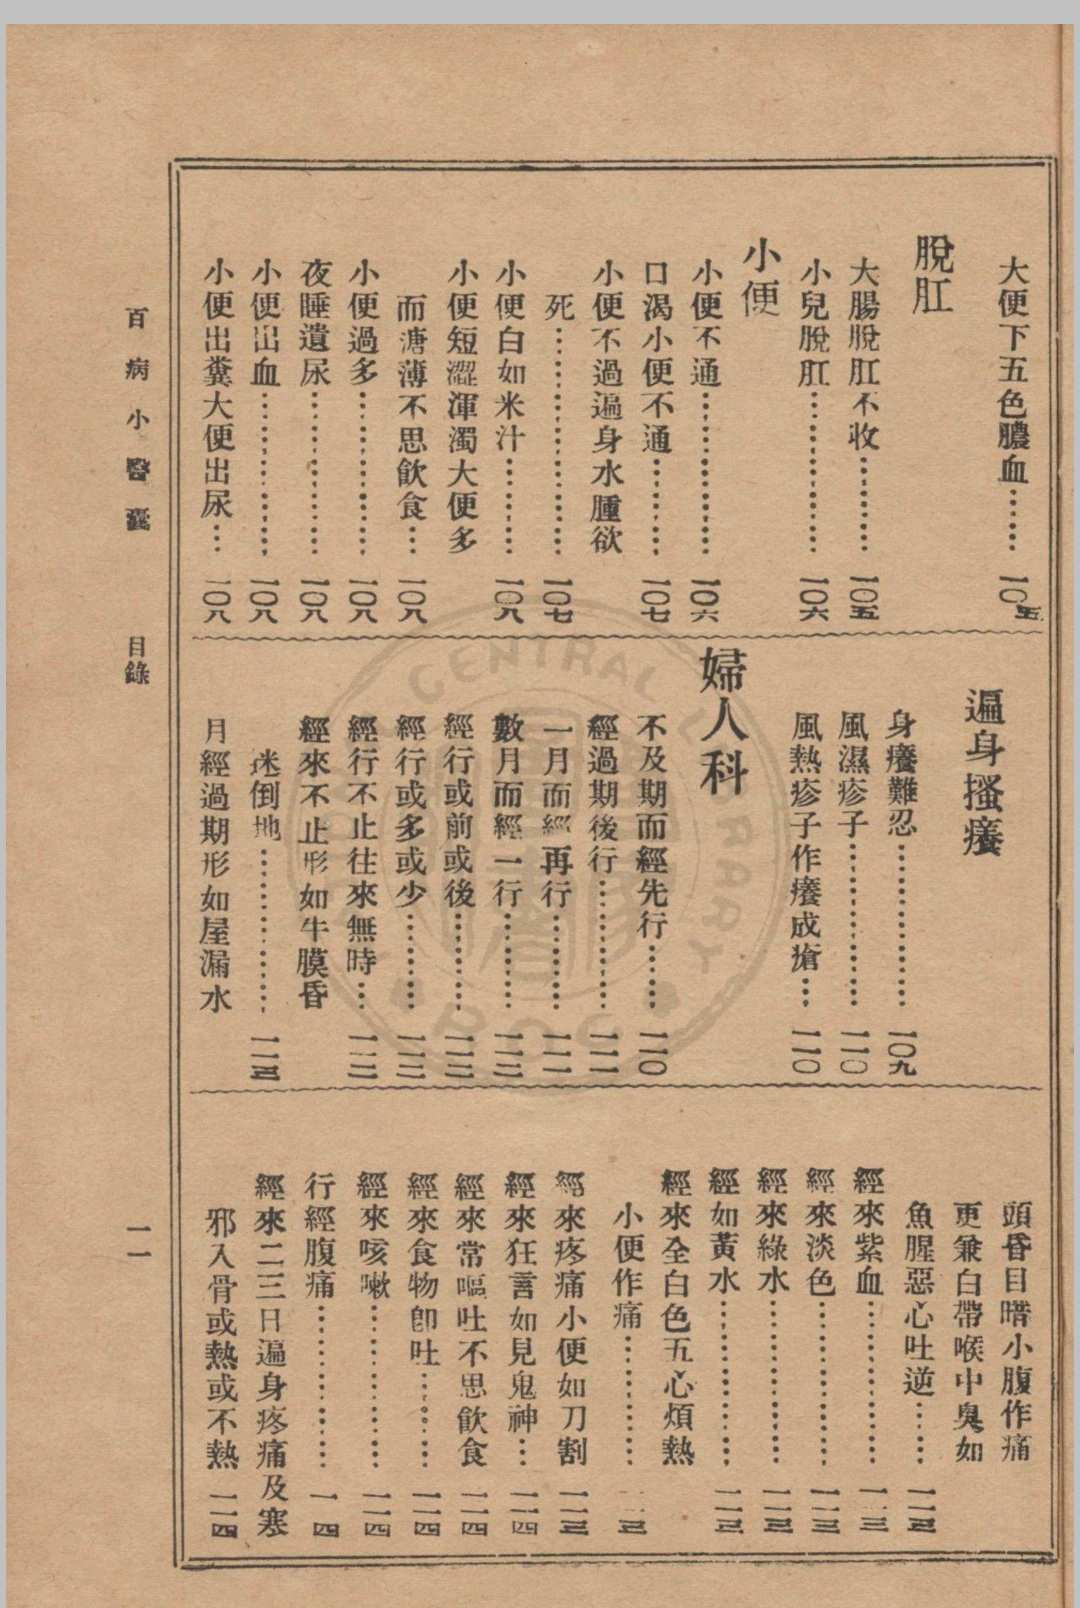 大便下五色膿血……一〇五
脫肛
大腸脫肛不收……一〇五
小兒脫肛……一〇六
小便
小便不通……一〇六
口渴小便不通……一〇七
小便不過遍身水腫欲
死……一〇七
小便白如米汁……一〇八
小便短澀渾濁大便多
而溏薄不思飲食…一〇八
小便過多……一〇八
夜睡遺尿……一〇八
小便出血……一〇八
小便出糞大便出尿…一〇八
遍身搔癢
身癢難忍……一〇九
風濕疹子……一一〇
風熱疹子作癢成瘡…一一〇
婦人科
不及期而經先行……一一〇
經過期後行……一一一
一月而經再行……一一一
數月而經一行……一一二
經行或前或後……一一二
經行或多或少……一一二
經行不止往來無時…一一二
經來不止形如牛膜昏
迷倒地……一一三
月經過期形如屋漏水
頭昏目暗小腹作痛
更兼白帶喉中臭如
魚腥惡心吐逆……一一三
經來紫血……一一三
經來淡色……一一三
經來綠水……一一三
經如黃水……一一三
經來全白色五心煩熱
小便作痛……一一三
經來疼痛小便如刀割一一三
經來狂言如見鬼神…一一四
經來常嘔吐不思飲食一一四
經來食物卽吐……一一四
經來咳嗽……一一四
行經腹痛……一一四
經來二三日遍身疼痛及寒
邪入骨或熱或不熱一一四
百病小醫囊 目錄 一一
CENTRAL LIBRARY